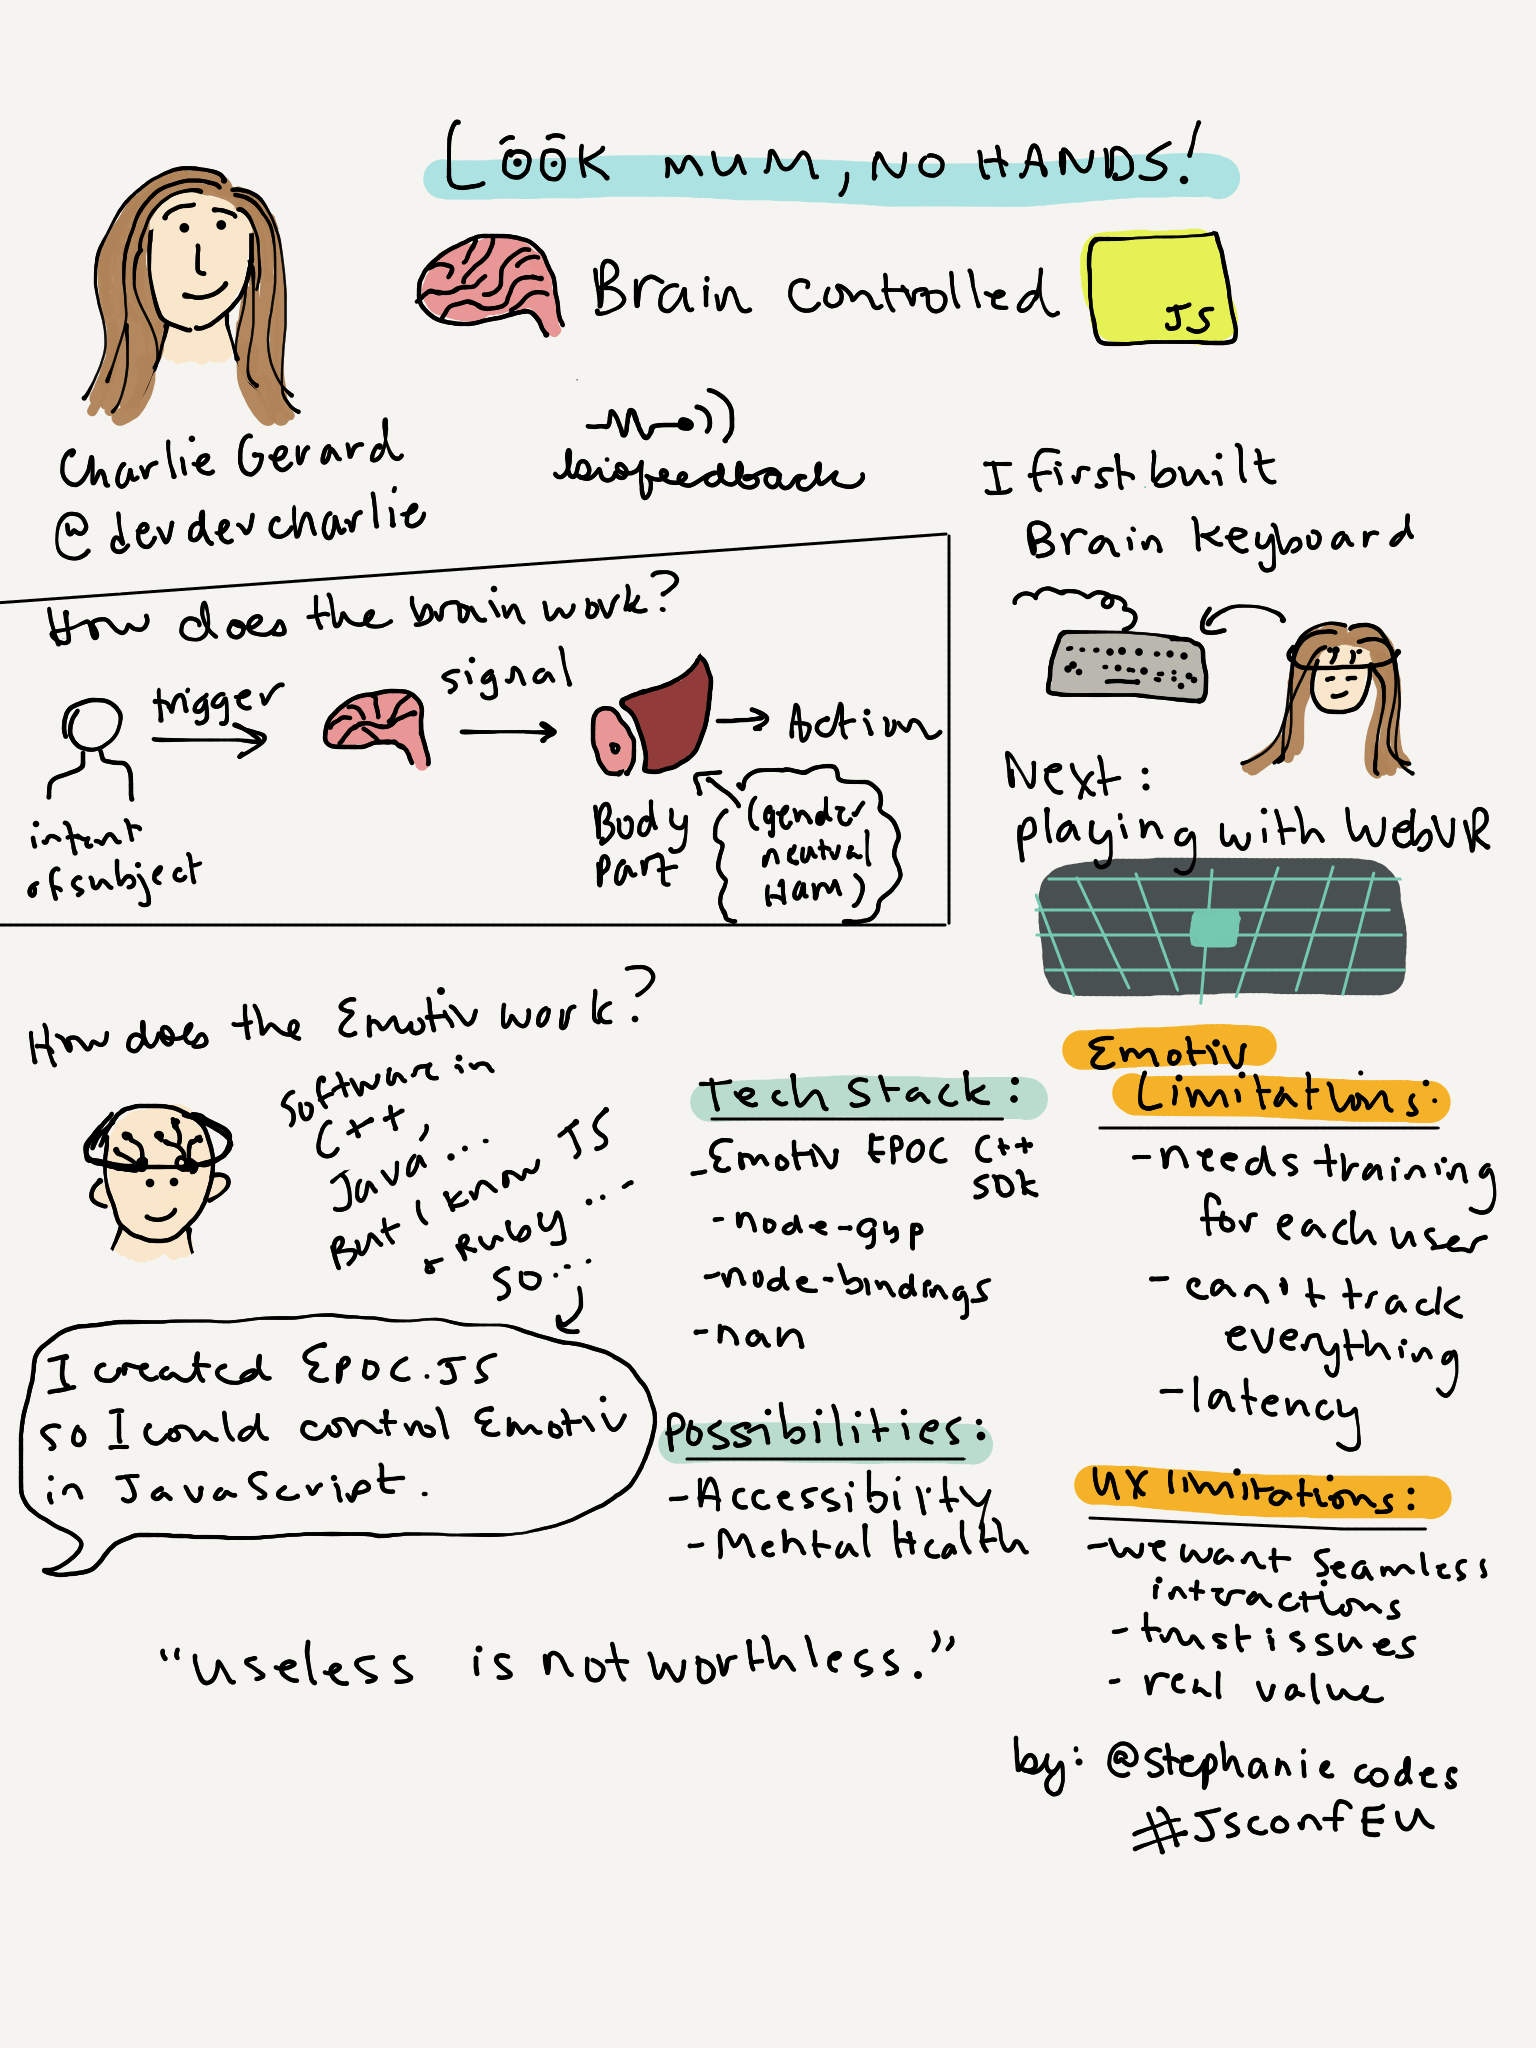 LOOK MUM, NO HANDS!
Brain controlled
JS
Charlie Gerard
@devdevcharlie
biofeedback
How does the brain work?
trigger
signal
Action
intent
of subject
Body
Part
(gender
neutral
Ham)
I first built
Brain keyboard
Next:
playing with WebVR
How does the Emotiv work?
Software in
C++,
Java...
But I know JS
+ Ruby...
so...
I created EPOC.JS
so I could control Emotiv
in JavaScript.
Tech Stack:
- Emotiv EPOC C++
SDK
- node-gyp
- node-bindings
- nan
Possibilities:
- Accessibility
- Mental Health
Emotiv
Limitations:
- needs training
for each user
- can't track
everything
- latency
UX limitations:
- we want seamless
interactions
- trust issues
- real value
"useless is not worthless."
by: @stephaniecodes
#JSconfEU